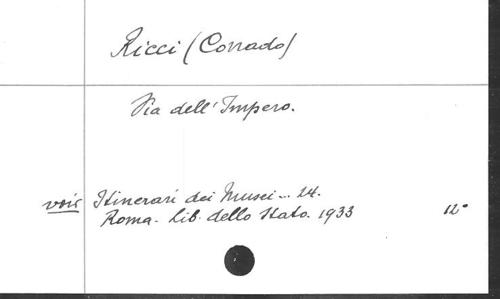 Ricci (Corrado)
Via dell'Impero.
voir Itinerari dei Musei... 24.
Roma. Lib. dello Stato. 1933 12°